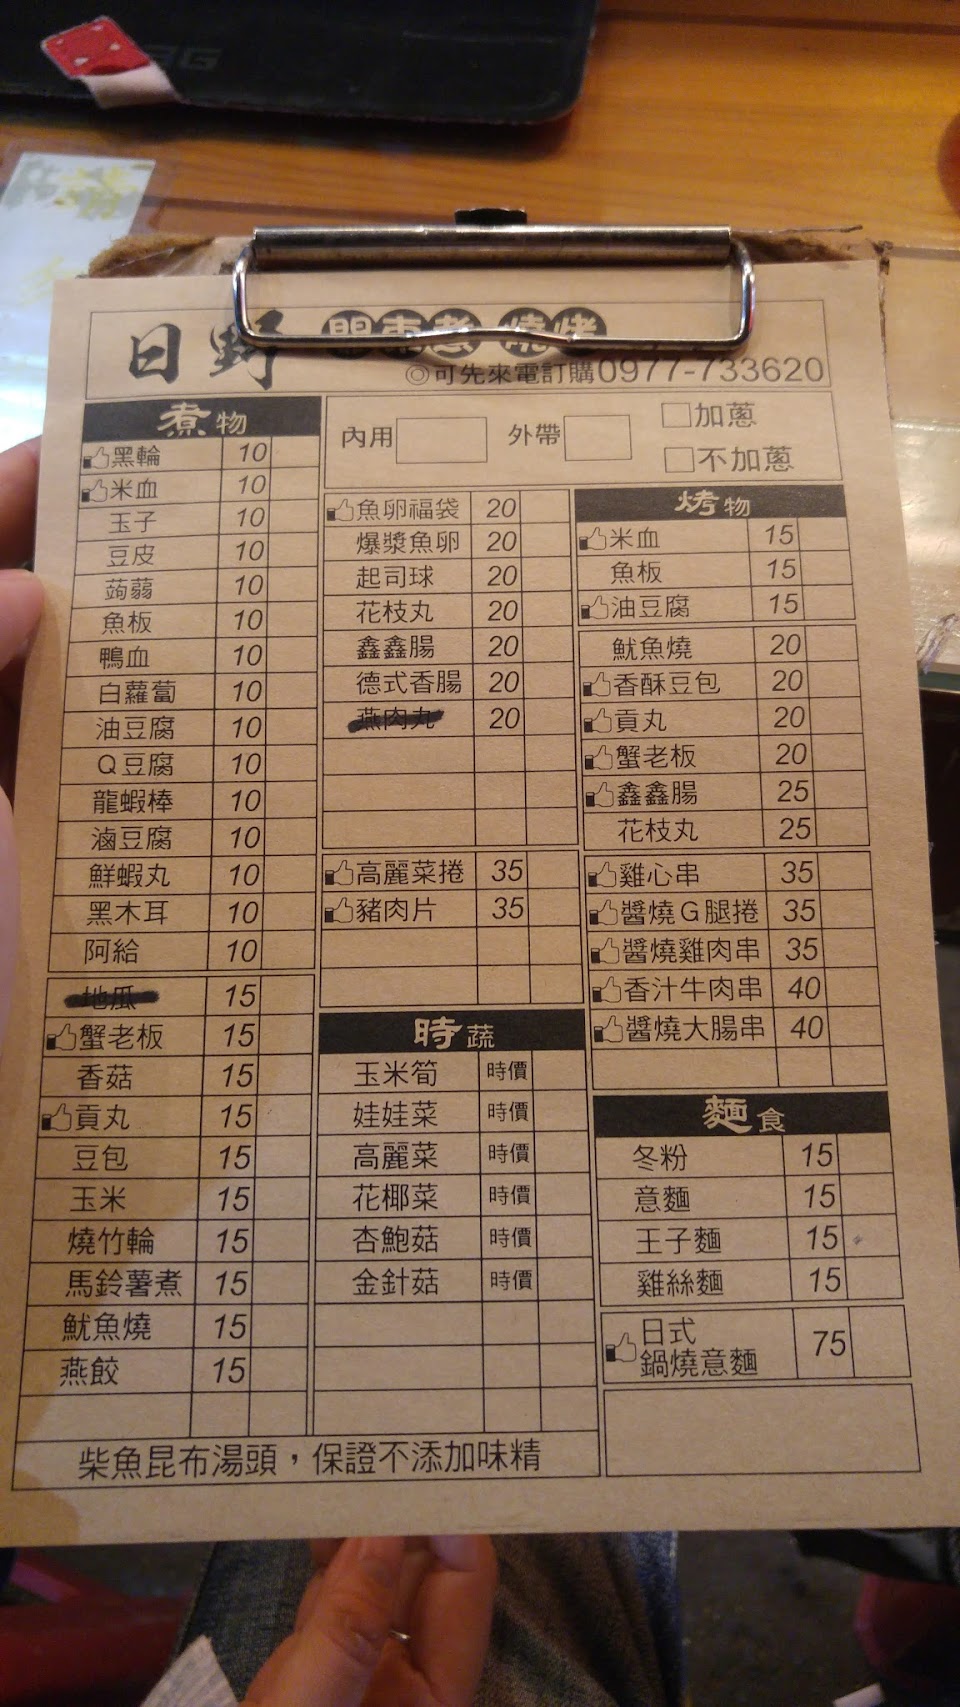 日野 關東煮 燒烤
◎可先來電訂購0977-733620
煮物
黑輪 10
米血 10
玉子 10
豆皮 10
蒟蒻 10
魚板 10
鴨血 10
白蘿蔔 10
油豆腐 10
Q豆腐 10
龍蝦棒 10
滷豆腐 10
鮮蝦丸 10
黑木耳 10
阿給 10
地瓜 15
蟹老板 15
香菇 15
貢丸 15
豆包 15
玉米 15
燒竹輪 15
馬鈴薯煮 15
魷魚燒 15
燕餃 15
內用 外帶
□加蔥
□不加蔥
魚卵福袋 20
爆漿魚卵 20
起司球 20
花枝丸 20
鑫鑫腸 20
德式香腸 20
燕肉丸 20
高麗菜捲 35
豬肉片 35
時蔬
玉米筍 時價
娃娃菜 時價
高麗菜 時價
花椰菜 時價
杏鮑菇 時價
金針菇 時價
烤物
米血 15
魚板 15
油豆腐 15
魷魚燒 20
香酥豆包 20
貢丸 20
蟹老板 20
鑫鑫腸 25
花枝丸 25
雞心串 35
醬燒G腿捲 35
醬燒雞肉串 35
香汁牛肉串 40
醬燒大腸串 40
麵食
冬粉 15
意麵 15
王子麵 15
雞絲麵 15
日式
鍋燒意麵 75
柴魚昆布湯頭，保證不添加味精